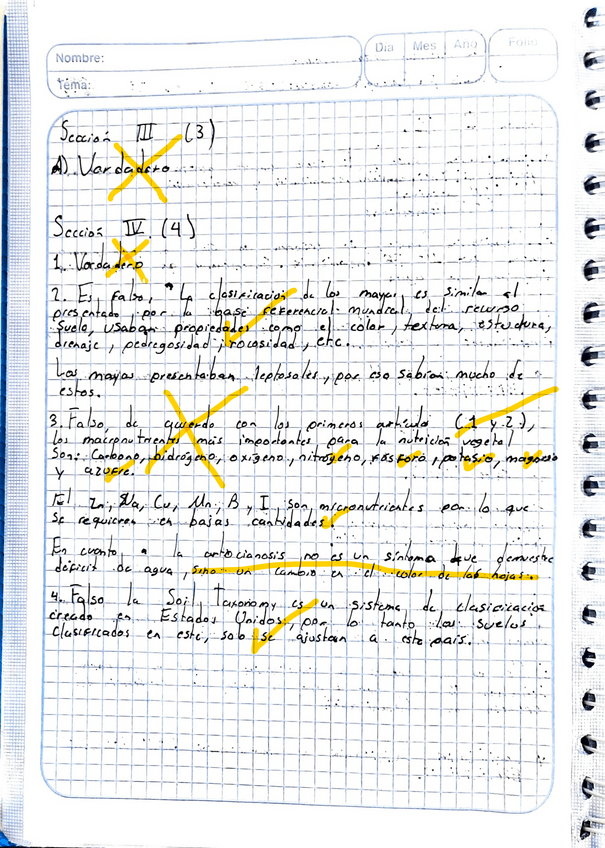 Nombre:
Dia Mes Año Folio
Tema:
Sección III (3)
A) Vardadero
Sección IV. (4)
1. Vardadero
2. Es falso, "La clasificación de los mayas es similar al
presentado por la base referencial mundial del recurso
suelo, usaban propiedades como el color, textura, estructura,
drenaje, pedregosidad, rocosidad, etc.
Los mayas presentaban leptosoles, por eso sabían mucho de
estos.
3. Falso, de acuerdo con los primeros artículo (1 y 2),
los macronutrientes más importantes para la nutrición vegetal
Son: Carbono, hidrógeno, oxígeno, nitrógeno, fósforo, potasio, magnesio
y azufre.
El Zn, Na, Cu, Mn, B, I son micronutrientes por lo que
se requieren en bajas cantidades.
En cuanto a la antocianosis no es un síntoma que demuestre
déficit de agua, sino un cambio en el color de las hojas.
4. Falso la Soil Taxonomy es un sistema de clasificación
creado en Estados Unidos, por lo tanto los suelos
clasificados en este, solo se ajustan a este país.